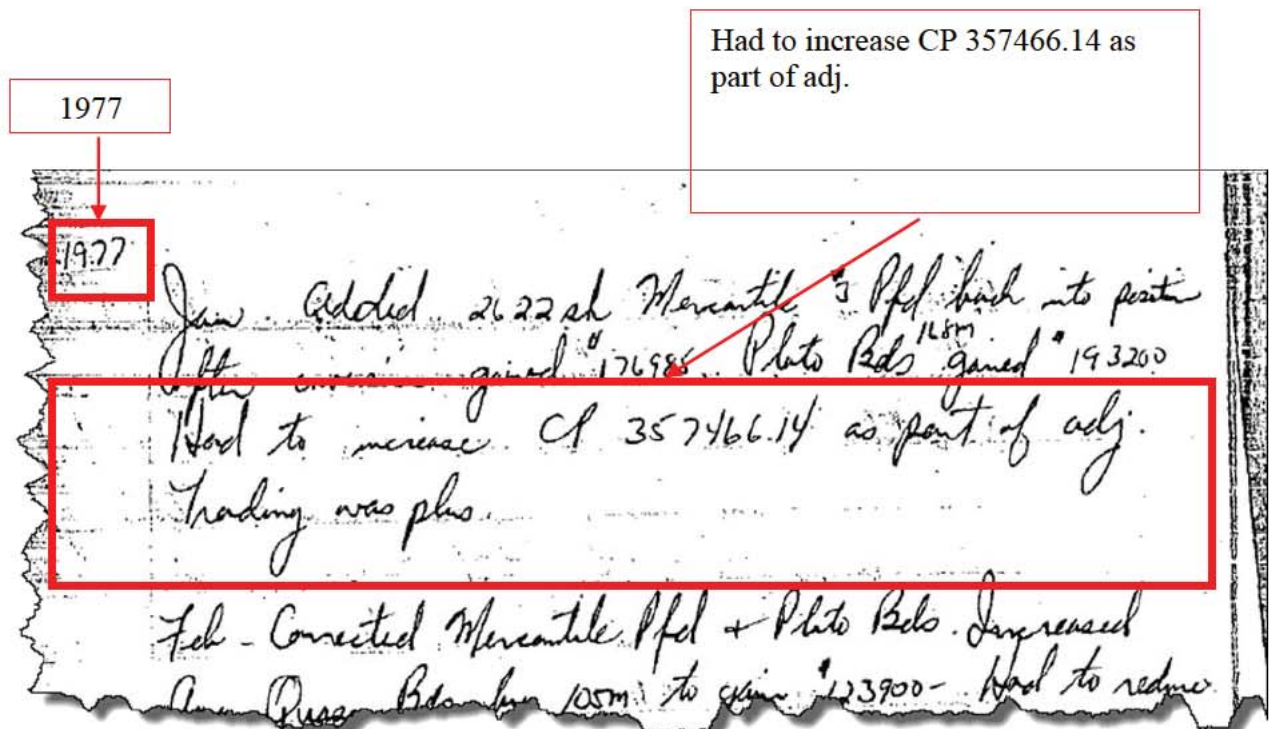 Had to increase CP 357466.14 as
part of adj.
1977
1977
Jan. Added 2622 sh Mercantile Pfd back into position
After gained $176985. Pluto Bds 168m gained $193200
Had to increase CP 357466.14 as part of adj.
Trading was plus.
Feb - Corrected Mercantile Pfd + Pluto Bds. Increased
Bds by 105m to gain $123900- Had to reduce